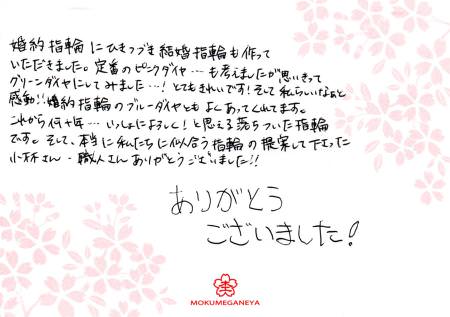 婚約指輪にひきつづき結婚指輪も作って
いただきました。定番のピンクダイヤ…も考えましたが思いきって
グリーンダイヤにしてみました…!とてもきれいです!そして私らしいなぁと
感動!!婚約指輪のブルーダイヤとも よくあってくれてます。
これから何十年…いっしょによろしく!と思える落ちついた指輪
です。そして、本当に私たちに似合う指輪の提案して下さった
小林さん・職人さんありがとうございました!!
ありがとう
ございました!
MOKUMEGANEYA